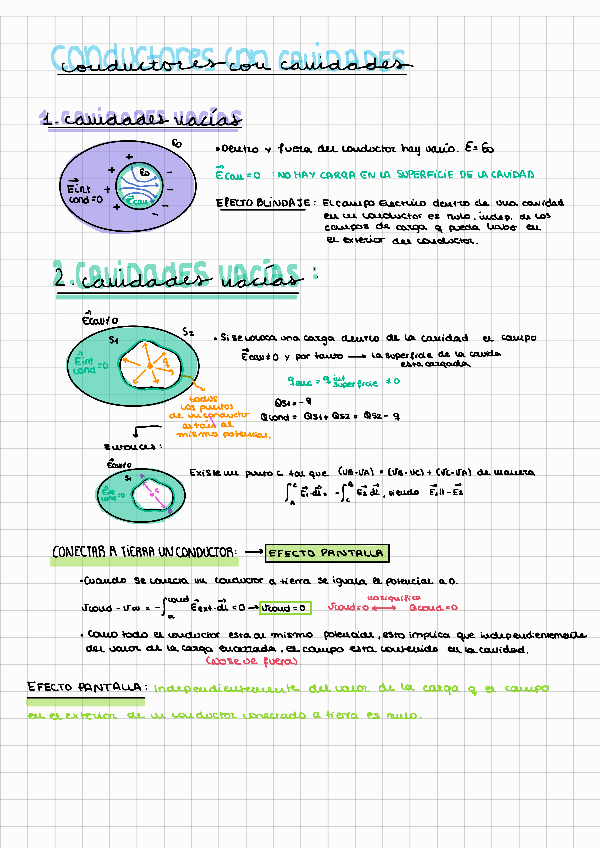 CONDUCTORES CON CAVIDADES
conductores con cavidades
1. cavidades vacías
• Dentro y fuera del conductor hay vacío. E = E₀
E⃗cav = 0 : NO HAY CARGA EN LA SUPERFICIE DE LA CAVIDAD
EFECTO BLINDAJE : El campo Electrico dentro de una cavidad
en un conductor es nulo, indep. de los
campos de carga q pueda haber en
el exterior del conductor.
E₀
E₀
E⃗int
cond = 0
E⃗cav
2. cavidades vacías :
E⃗cav ≠ 0
S1
S2
E⃗int
cond = 0
q
• Si se coloca una carga dentro de la cavidad el campo
E⃗cav ≠ 0 y por tanto → la superficie de la cavida
esta cargada
q enc = q int superficie ≠ 0
todos
los puntos
de un conducto
estan al
mismo potencial.
QS1 = -q
Qcond = QS1 + QS2 = QS2 - q
Entonces :
E⃗cav ≠ 0
S1
cond = 0
C
Existe un punto C tal que (VB-VA) = (VB-VC) + (VC-VA) de manera
∫ E⃗1·dl⃗ = - ∫ E⃗2 dl⃗, siendo E⃗1 || -E⃗2
CONECTAR A TIERRA UN CONDUCTOR: → EFECTO PANTALLA
• Cuando se conecta un conductor a tierra se iguala el potencial a 0.
Vcond - V∞ = - ∫ cond E⃗ext·dl = 0 → Vcond = 0
no significa
Vcond = 0 ↔ Qcond = 0
• Como todo el conductor esta al mismo potencial, esto implica que independientemente
del valor de la carga encerrada, el campo esta contenido en la cavidad.
(No se ve fuera)
EFECTO PANTALLA : Independientemente del valor de la carga q el campo
en el exterior de un conductor conectado a tierra es nulo.